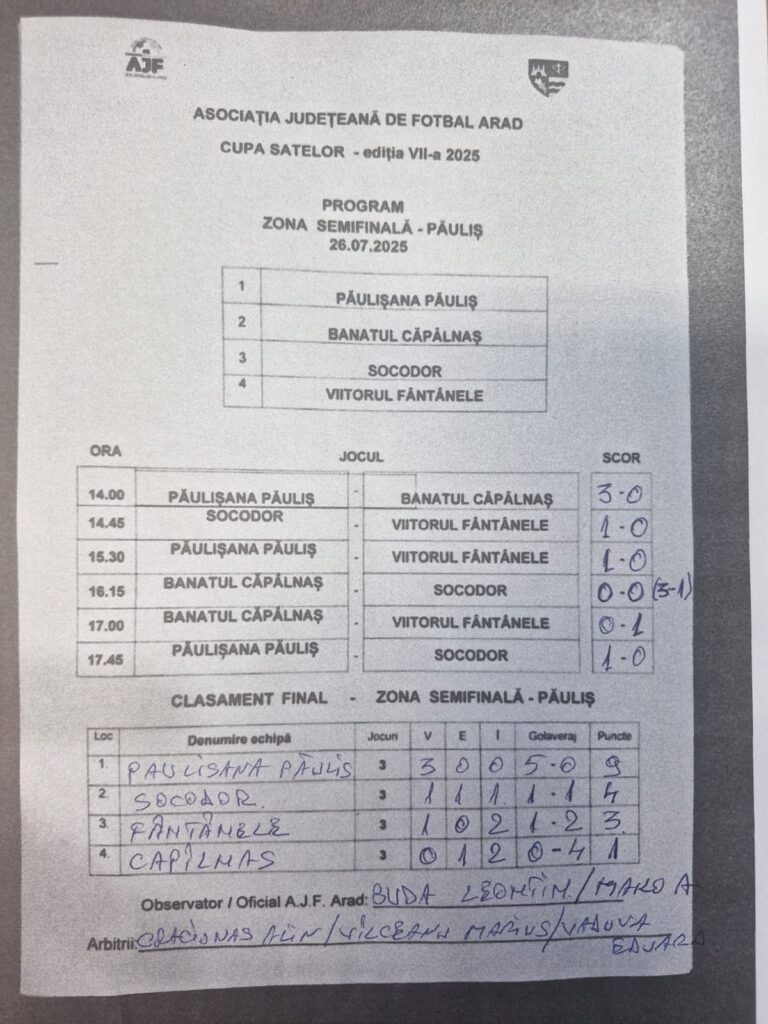 AJF
ASOCIAȚIA JUDEȚEANĂ DE FOTBAL ARAD
CUPA SATELOR - ediția VII-a 2025
PROGRAM
ZONA SEMIFINALĂ - PĂULIȘ
26.07.2025
1 PĂULIȘANA PĂULIȘ
2 BANATUL CĂPÂLNAȘ
3 SOCODOR
4 VIITORUL FÂNTÂNELE
ORA JOCUL SCOR
14.00 PĂULIȘANA PĂULIȘ - BANATUL CĂPÂLNAȘ 3-0
14.45 SOCODOR - VIITORUL FÂNTÂNELE 1-0
15.30 PĂULIȘANA PĂULIȘ - VIITORUL FÂNTÂNELE 1-0
16.15 BANATUL CĂPÂLNAȘ - SOCODOR 0-0 (3-1)
17.00 BANATUL CĂPÂLNAȘ - VIITORUL FÂNTÂNELE 0-1
17.45 PĂULIȘANA PĂULIȘ - SOCODOR 1-0
CLASAMENT FINAL - ZONA SEMIFINALĂ - PĂULIȘ
Loc Denumire echipă Jocuri V E Î Golaveraj Puncte
1. PAULISANA PĂULIS 3 3 0 0 5-0 9
2. SOCODOR. 3 1 1 1 1-1 4
3. FÂNTÂNELE 3 1 0 2 1-2 3
4. CAPÎLNAS 3 0 1 2 0-4 1
Observator / Oficial A.J.F. Arad: BUDA LEONTIN / MAKO A
Arbitrii: ALIN / VÎLCEANU MARIUS / VADUVA
EDUARD